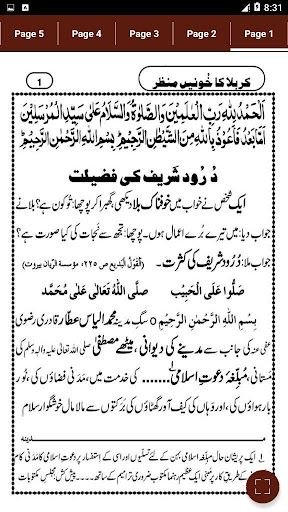 8:31
Page 5 Page 4 Page 3 Page 2 Page 1
کربلا کا خونیں منظر
1
اَلْحَمْدُ لِلّٰهِ رَبِّ الْعٰلَمِيْنَ وَالصَّلٰوةُ وَالسَّلَامُ عَلٰى سَيِّدِ الْمُرْسَلِيْنَ
اَمَّا بَعْدُ فَاَعُوْذُ بِاللّٰهِ مِنَ الشَّيْطٰنِ الرَّجِيْمِ بِسْمِ اللّٰهِ الرَّحْمٰنِ الرَّحِيْمِ
دُرُود شریف کی فضیلت
ایک شخص نے خواب میں خوفناک بلا دیکھی، گھبرا کر پوچھا: تُو کون ہے؟ بلا نے
جواب دیا: میں تیرے بُرے اعمال ہوں۔ پوچھا: تجھ سے نَجات کی کیا صورت ہے؟
جواب ملا: دُرُود شریف کی کثرت۔ (اَلْقَوْلُ الْبَدِیع ص ۲۲۵، مؤسسة الریان بیروت)
صَلُّوا عَلَى الْحَبِيْب صَلَّى اللّٰهُ تَعَالٰى عَلٰى مُحَمَّد
بِسْمِ اللّٰهِ الرَّحْمٰنِ الرَّحِيْمِ سگِ مدینہ محمد الیاس عطار قادری رضوی
عفی عنہ کی جانب سے مدینے کی دیوانی، میٹھے مصطفٰی صلی اللہ تعالیٰ علیہ والہ وسلم کی
مَستانی، مُبلِّغۂ دعوتِ اسلامی....... کی خدمت میں، مَدَنی فضاؤں کی، نور
بار ہواؤں کی، اور وہاں کی کیف آور گھٹاؤں کی بَرَکتوں سے مالا مال خوشگوار سلام
مدینہ